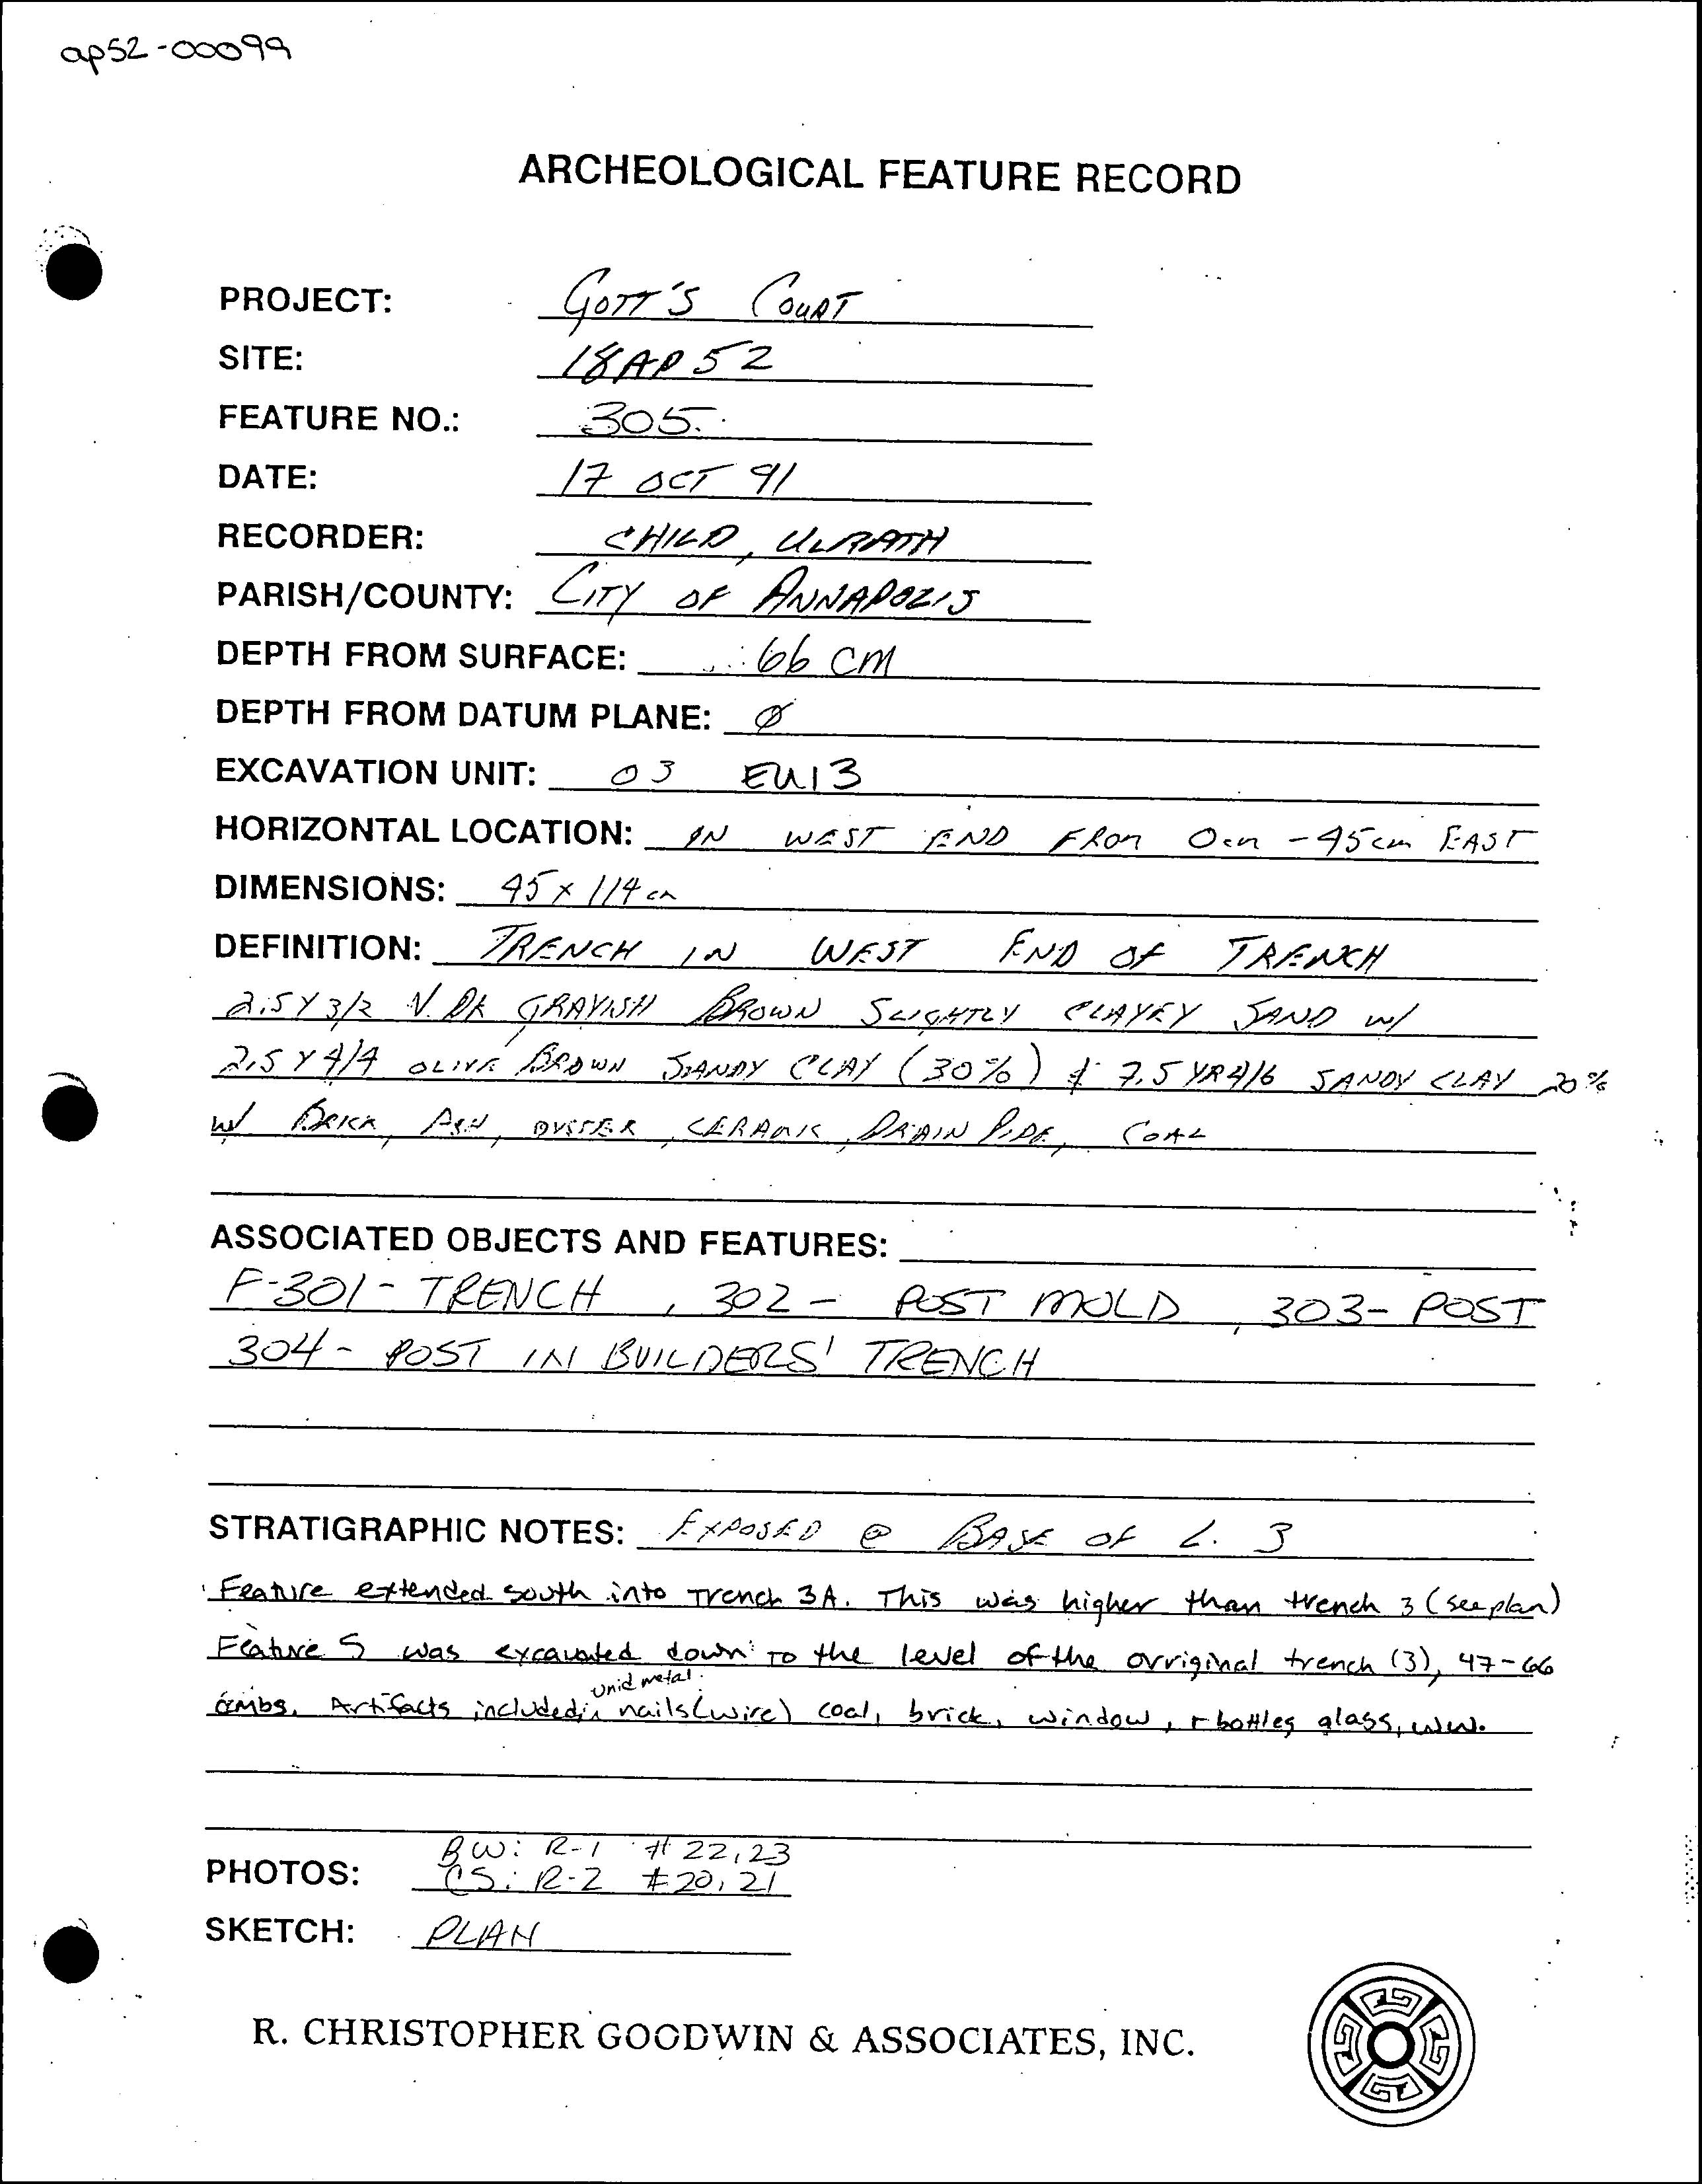 ap52-00099
ARCHEOLOGICAL FEATURE RECORD
PROJECT: GOTT'S COURT
SITE: 18AP52
FEATURE NO.: 305
DATE: 17 OCT 91
RECORDER: CHILD, ULRATH
PARISH/COUNTY: CITY OF ANNAPOLIS
DEPTH FROM SURFACE: 66 CM
DEPTH FROM DATUM PLANE: Ø
EXCAVATION UNIT: 03 EU13
HORIZONTAL LOCATION: IN WEST END FROM 0cm - 45cm EAST
DIMENSIONS: 45 x 114 cm
DEFINITION: TRENCH IN WEST END OF TRENCH
2.5Y 3/2 V. DK GRAYISH BROWN SLIGHTLY CLAYEY SAND W/
2.5 Y 4/4 OLIVE BROWN SANDY CLAY (30%) & 7.5 YR 4/6 SANDY CLAY 20%
W/ BRICK, ASH, OYSTER, CERAMIC, DRAIN PIPE, COAL
ASSOCIATED OBJECTS AND FEATURES:
F-301- TRENCH, 302 - POST MOLD, 303- POST
304- POST IN BUILDERS' TRENCH
STRATIGRAPHIC NOTES: EXPOSED @ BASE OF L. 3
Feature extended south into Trench 3A. This was higher than trench 3 (see plan)
Feature 5 was excavated down to the level of the orriginal trench (3), 47-66
unid metal
cmbs. Artifacts included: nails (wire) coal, brick, window, + bottles glass, ww.
BW: R-1 # 22,23
PHOTOS: CS: R-2 # 20, 21
SKETCH: PLAN
R. CHRISTOPHER GOODWIN & ASSOCIATES, INC.